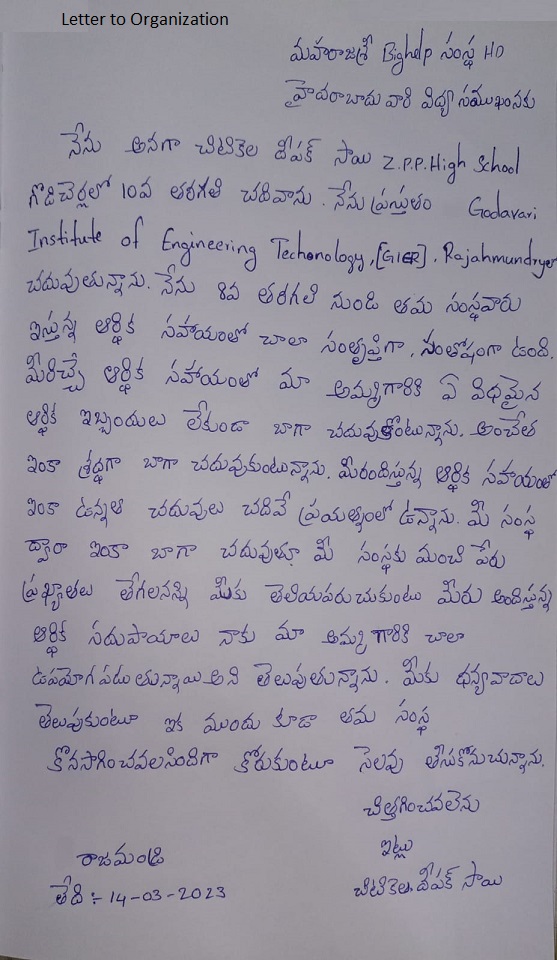 Letter to Organization
మహారాజశ్రీ Bighelp సంస్థ HO
హైదరాబాదు వారి విద్యా సముఖంనకు
నేను అనగా చిటికెల దీపక్ సాయి Z.P.P.High School
గొడిచెర్లలో 10వ తరగతి చదివాను. నేను ప్రస్తుతం Godavari
Institute of Engineering Techonology,[GIER], Rajahmundryer
చదువుతున్నాను. నేను 8వ తరగతి నుండి తమ సంస్థవారు
ఇస్తున్న ఆర్థిక సహాయంతో చాలా సంతృప్తిగా, సంతోషంగా ఉంది.
మీరిచ్చే ఆర్థిక సహాయంతో మా అమ్మగారికి ఏ విధమైన
ఆర్థిక ఇబ్బందులు లేకుండా బాగా చదువుకొంటున్నాను. అంచేత
ఇంకా శ్రద్ధగా బాగా చదువుకుంటున్నాను. మీరందిస్తున్న ఆర్థిక సహాయంతో
ఇంకా ఉన్నత చదువులు చదివే ప్రయత్నంలో ఉన్నాను. మీ సంస్థ
ద్వారా ఇంకా బాగా చదువుతూ మీ సంస్థకు మంచి పేరు
ప్రఖ్యాతలు తేగలనని మీకు తెలియపరుచుకుంటు మీరు అందిస్తున్న
ఆర్థిక సదుపాయాలు నాకు మా అమ్మగారికి చాలా
ఉపయోగపడుతున్నాయి అని తెలుపుతున్నాను. మీకు ధన్యవాదాలు
తెలుపుకుంటూ ఇక ముందు కూడా తమ సంస్థ
కొనసాగించవలసిందిగా కోరుకుంటూ సెలవు తీసుకొనుచున్నాను.
చిత్తగించవలెను
ఇట్లు
రాజమండ్రి
తేది :- 14-03-2023
చిటికెల.దీపక్ సాయి